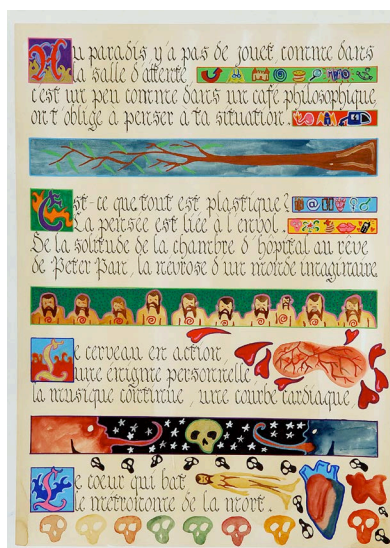 Au paradis y'a pas de jouet, comme dans
la salle d'attente,
c'est un peu comme dans un café philosophique
on t'oblige à penser à ta situation.
Est-ce que tout est plastique?
La pensée est liée à l'envol.
De la solitude de la chambre d'hôpital au rêve
de Peter Pan, la névrose d'un monde imaginaire
Le cerveau en action,
une énigme personnelle,
la musique continue, une courbe cardiaque.
Le coeur qui bat
le métronome de la mort.